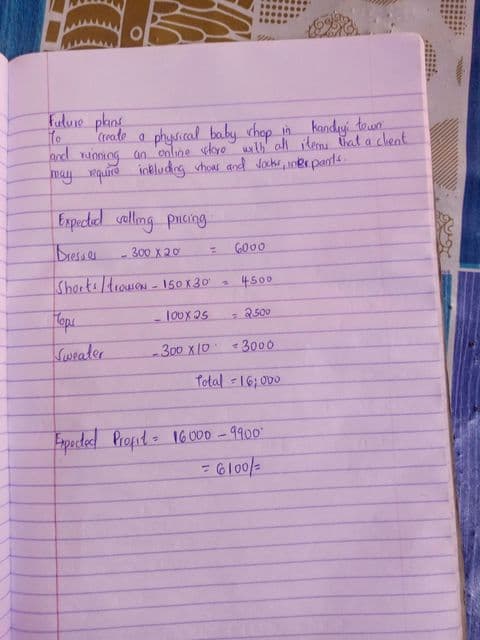 Future plans
To create a physical baby shop in Kanduyi town
and running an online store with all items that a client
may require including shoes and socks, inner pants.
Expected selling pricing
Dresses - 300 x 20 = 6000
Shorts/trousers - 150 x 30 = 4500
Tops - 100 x 25 = 2500
Sweater - 300 x 10 = 3000
Total = 16,000
Expected Profit = 16000 - 9900
= 6100/=